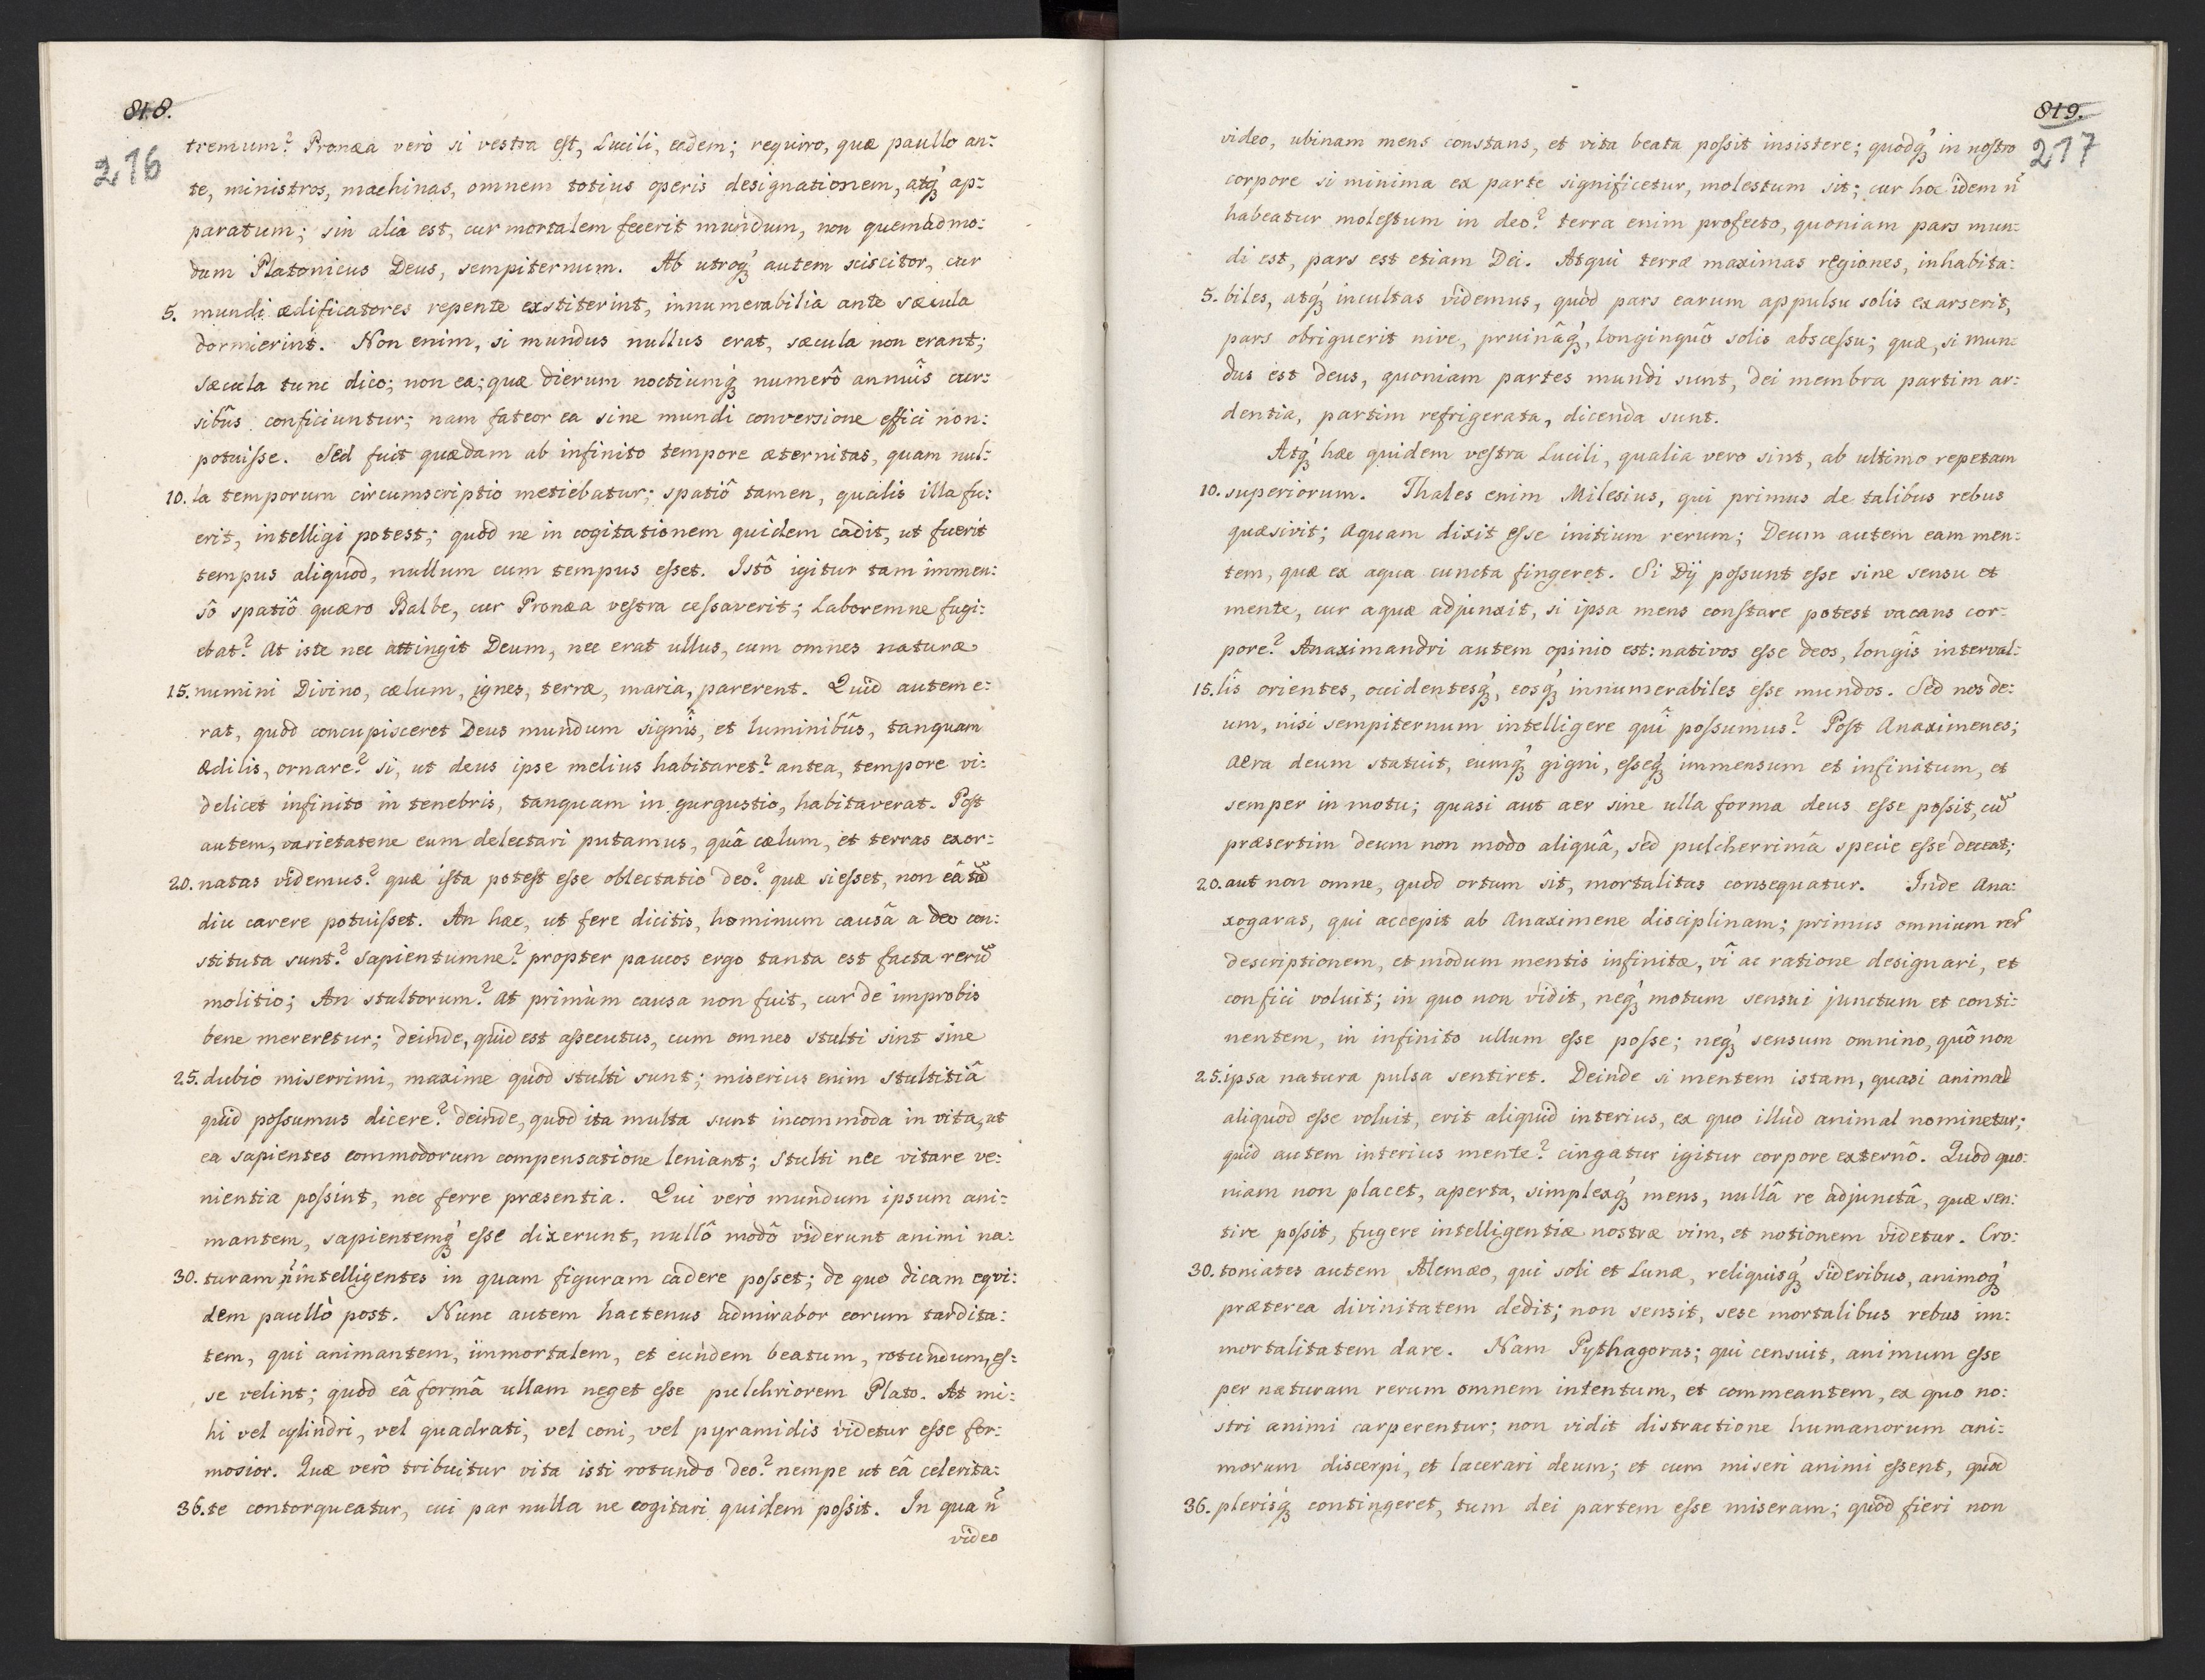 818.
216
tremum? Pronæa verò si vestra est, Lucili, eadem; requiro, quæ paullo an:
te, ministros, machinas, omnem totius operis designationem, atq́ ap:
paratum; sin alia est, cur mortalem fecerit mundum, non quemadmo:
dum Platonicus Deus, sempiternum. Ab utroq́ autem sciscitor, cur
5. mundi ædificatores repente exstiterint, innumerabilia ante sæcula
dormierint. Non enim, si mundus nullus erat, sæcula non erant;
sæcula tunc dico; non ea; quæ dierum noctiumq́ numerô annuîs cur:
sibûs conficiuntur; nam fateor ea sine mundi conversione effici non:
potuisse. Sed fuit quædam ab infinito tempore æternitas, quam nul:
10. la temporum circumscriptio metiebatur; spatiô tamen, qualis illa fu:
erit, intelligi potest; quod ne in cogitationem quidem cadit, ut fuerit
tempus aliquod, nullum cum tempus esset. Istô igitur tam immen:
sô spatiô quæro Balbe, cur Pronæa vestra cessaverit; Laboremne fugi:
ebat? At iste nec attingit Deum, nec erat ullus, cum omnes naturæ
15. numini Divino, cælum, ignes, terræ, maria, parerent. Quid autem e:
rat, quod concupisceret Deus mundum signîs, et luminibûs, tanquam
ædilis, ornare? si, ut deus ipse melius habitaret? antea, tempore vi:
delicet infinito in tenebris, tanquam in gurgustio, habitaverat. Post
autem, varietatene eum delectari putamus, quâ cælum, et terras exor:
20. natas videmus? quæ ista potest esse oblectatio deo? quæ si esset, non eâ tā
diu carere potuisset. An hæc, ut fere dicitis, hominum causâ a deo con:
stituta sunt? Sapientumne? propter paucos ergo tanta est facta rerū
molitio; An stultorum? At primùm causa non fuit, cur de improbis
bene mereretur; deinde, quid est assecutus, cum omnes stulti sint sine
25. dubio miserrimi, maxime quod stulti sunt; miserius enim stultitiâ
quid possumus dicere? deinde, quod ita multa sunt incommoda in vita, ut
ea sapientes commodorum compensatione leniant; Stulti nec vitare ve:
nientia possint, nec ferre præsentia. Qui verò mundum ipsum ani:
mantem, sapientemq́ esse dixerunt, nullô modô viderunt animi na:
30. turam n̄ intelligentes in quam figuram cadere posset; de quo dicam eqvi:
dem paullò post. Nunc autem hactenus admirabor eorum tardita:
tem, qui animantem, immortalem, et eundem beatum, rotundum, es:
se velint; quod eâ formâ ullam neget esse pulchriorem Plato. At mi:
hi vel cylindri, vel quadrati, vel coni, vel pyramidis videtur esse for:
mosior. Quæ verò tribuitur vita isti rotundo deo? nempe ut eâ celerita:
36. te contorqueatur, cui par nulla ne cogitari quidem possit. In qua n̄
video
819.
217
video, ubinam mens constans, et vita beata possit insistere; quodq́ in nostro
corpore si minima ex parte significetur, molestum sit; cur hoc idem n̄
habeatur molestum in deo? terra enim profecto, quoniam pars mun:
di est, pars est etiam Dei. Atqui terræ maximas regiones, inhabita:
5. biles, atq́ incultas videmus, quòd pars earum appulsu solis exarserit,
pars obriguerit nive, pruinâq́, longinquô solis abscessu; quæ, si mun:
dus est deus, quoniam partes mundi sunt, dei membra partim ar:
dentia, partim refrigerata, dicenda sunt.
Atq́ hæc quidem vestra Lucili, qualia vero sint, ab ultimo repetam
10. superiorum. Thales enim Milesius, qui primus de talibus rebus
quæsivit; Aquam dixit esse initium rerum; Deum autem eam men:
tem, quæ ex aqua cuncta fingeret. Si Dÿ possunt esse sine sensu et
mente, cur aquæ adjunxit, si ipsa mens constare potest vacans cor:
pore? Anaximandri autem opinio est: nativos esse deos, longîs interval:
15. lîs orientes, occidentesq́, eosq́ innumerabiles esse mundos. Sed nos de:
um, nisi sempiternum intelligere quî possumus? Post Anaximenes;
Aëra deum statuit, eumq́ gigni, esseq́ immensum et infinitum, et
semper in motu; quasi aut aer sine ulla forma deus esse possit, cū
præsertim deum non modo aliquâ, sed pulcherrimâ specie esse deceat;
20. aut non omne, quod ortum sit, mortalitas consequatur. Inde Ana:
xogaras, qui accepit ab Anaximene disciplinam; primus omnium rer̄
descriptionem, et modum mentis infinitæ, vî ac ratione designari, et
confici voluit; in quo non vidit, neq́ motum sensui junctum et conti:
nentem, in infinito ullum esse posse; neq́ sensum omnino, quô non
25. ipsa natura pulsa sentiret. Deinde si mentem istam, quasi animal
aliquod esse voluit, erit aliquid interius, ex quo illud animal nominetur;
quid autem interius mente? cingatur igitur corpore externô. Quod quo:
niam non placet, aperta, simplexq́ mens, nullâ re adjunctâ, quæ sen:
tire possit, fugere intelligentiæ nostræ vim, et notionem videtur. Cro:
30. toniates autem Alcmæo, qui soli et Lunæ, reliquisq́ sideribus, animoq́
præterea divinitatem dedit; non sensit, sese mortalibus rebus im:
mortalitatem dare. Nam Pythagoras; qui censuit, animum esse
per naturam rerum omnem intentum, et commeantem, ex quo no:
stri animi carperentur; non vidit distractione humanorum ani:
morum discerpi, et lacerari deum; et cum miseri animi essent, quod
36. plerisq́ contingeret, tum dei partem esse miseram; quod fieri non